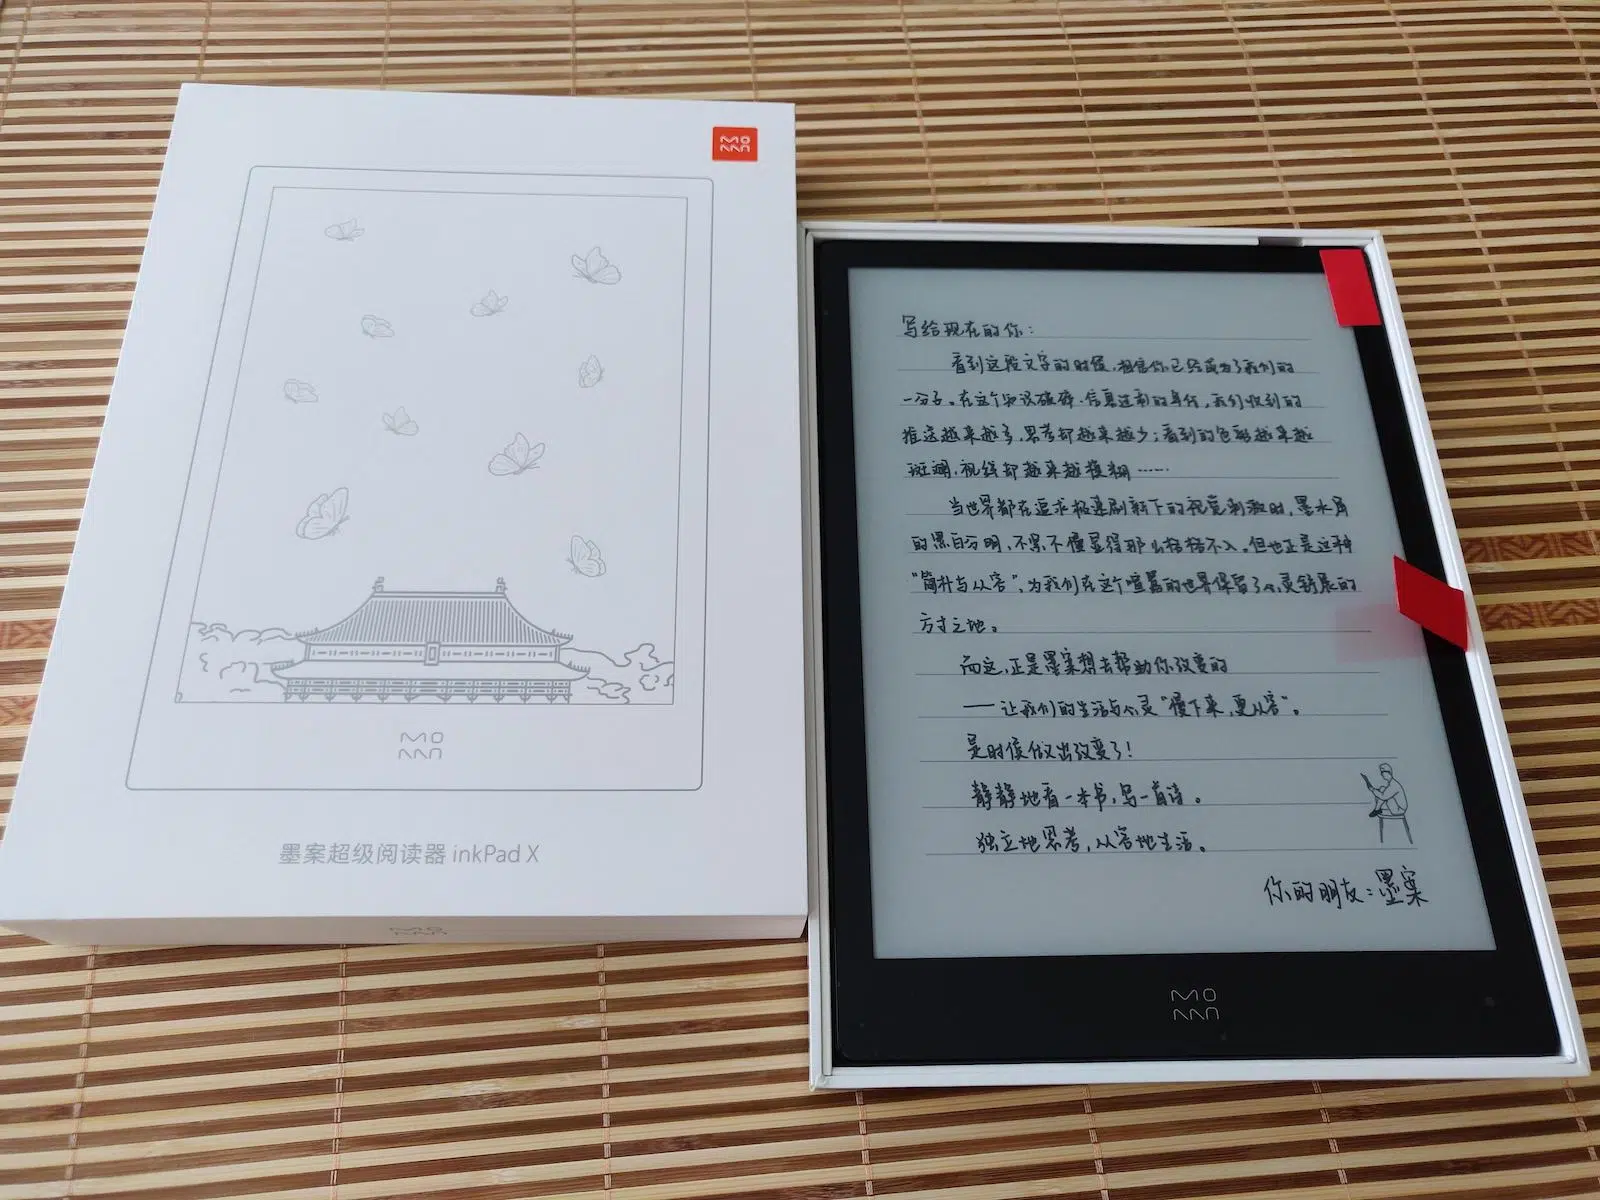 MOAN
MOAN
墨案超级阅读器 inkPad X
MOAN
写给现在的你：
看到这段文字的时候，相信你已经成为了我们的
一分子。在这个知识破碎、信息过剩的年代，我们收到的
推送越来越多，思考却越来越少；看到的色彩越来越
斑斓，视线却越来越模糊……
当世界都在追求极速刷新下的视觉刺激时，墨水屏
的黑白分明、不紧不慢显得那么格格不入。但也正是这种
“简朴与从容”，为我们在这个喧嚣的世界保留了心灵舒展的
方寸之地。
而这，正是墨案想去帮助你改变的
——让我们的生活与心灵“慢下来，更从容”。
是时候做出改变了！
静静地看一本书，写一首诗。
独立地思考，从容地生活。
你的朋友：墨案
MOAN